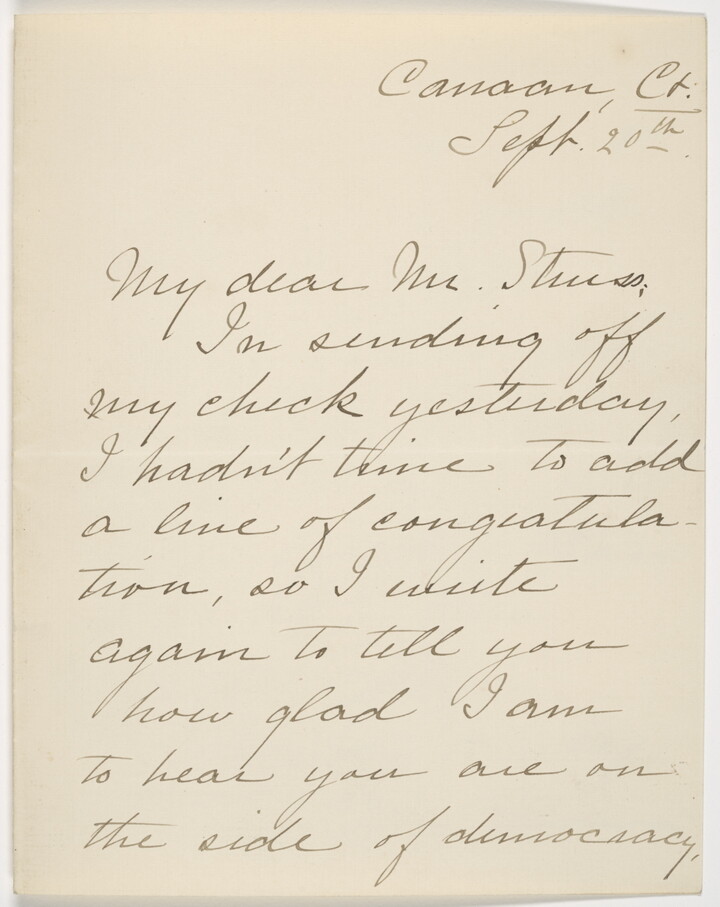 Canaan, Ct.
Sept. 20th.
My dear Mr. Struss:
In sending off
my check yesterday,
I hadn't time to add
a line of congratula-
tion, so I write
again to tell you
how glad I am
to hear you are on
the side of democracy,